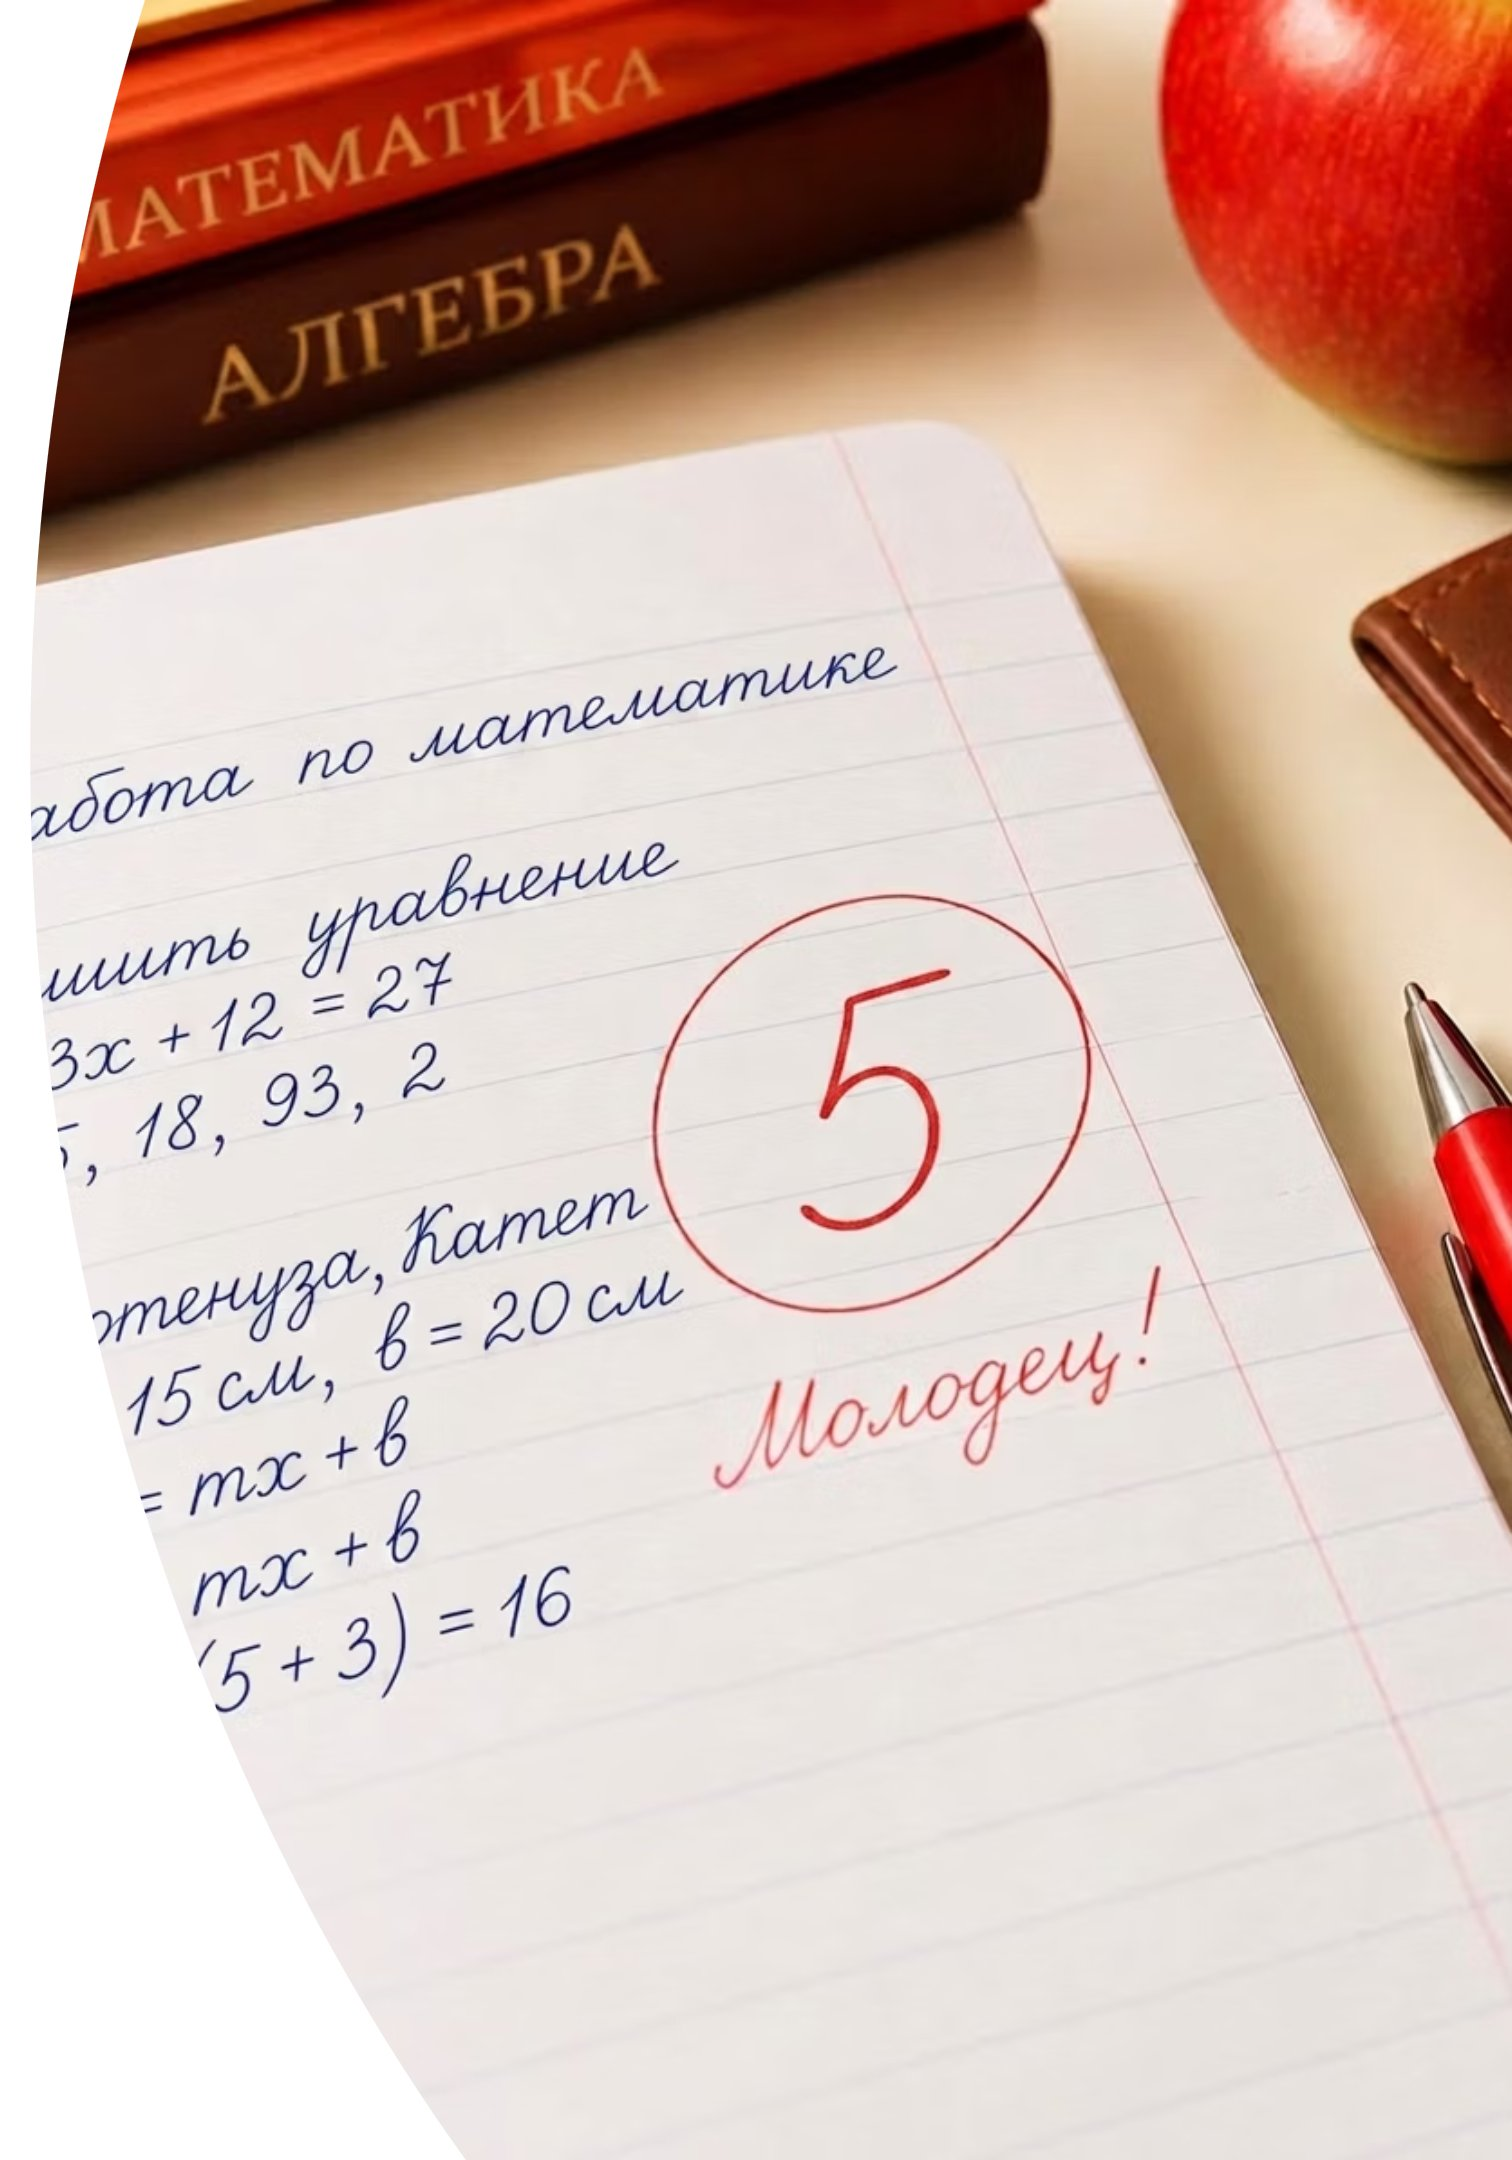 МАТЕМАТИКА
АЛГЕБРА
по математике
уравнение
3x + 12 = 27
, 18, 93, 2
Катет
15 см, в = 20 см
= mx + в
mx + в
(5 + 3) = 16
5
Молодец!